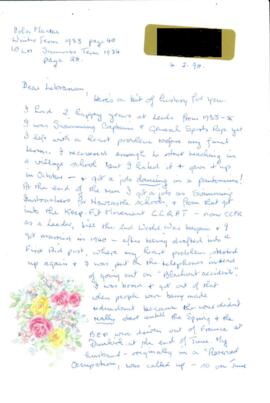 Winter Term 1933 page 40
Summer Term 1934
page 28.
4. 2. 90.
Dear Librarian,
Here's a bit of history for you.
I had 2 happy years at Leeds from 1933-5
I was Swimming Captain & General Sports Rep yet
I left with a heart problem before my final
term. I recovered enough to start teaching in
a village school but I hated it & gave it up
in October — & got a job dancing in a pantomime!
At the end of the run I got a job as Swimming
Instructress for Newcastle schools, & from that got
into the Keep-Fit Movement C.C.R.P.T — now CCPR
as a leader, till the 2nd World War began & I
got married in 1940 — after being drafted into a
First Aid post, where my heart problem started
up again & I was put on the telephones instead
of going out on "Blackout accidents".
I was bored & got out of that
when people were being made
redundant because the war didn't
really start until the Spring & the
BEF were driven out of France at
Dunkirk at the end of June. My
husband — originally in a "Reserved
Occupation", was called up — so in June